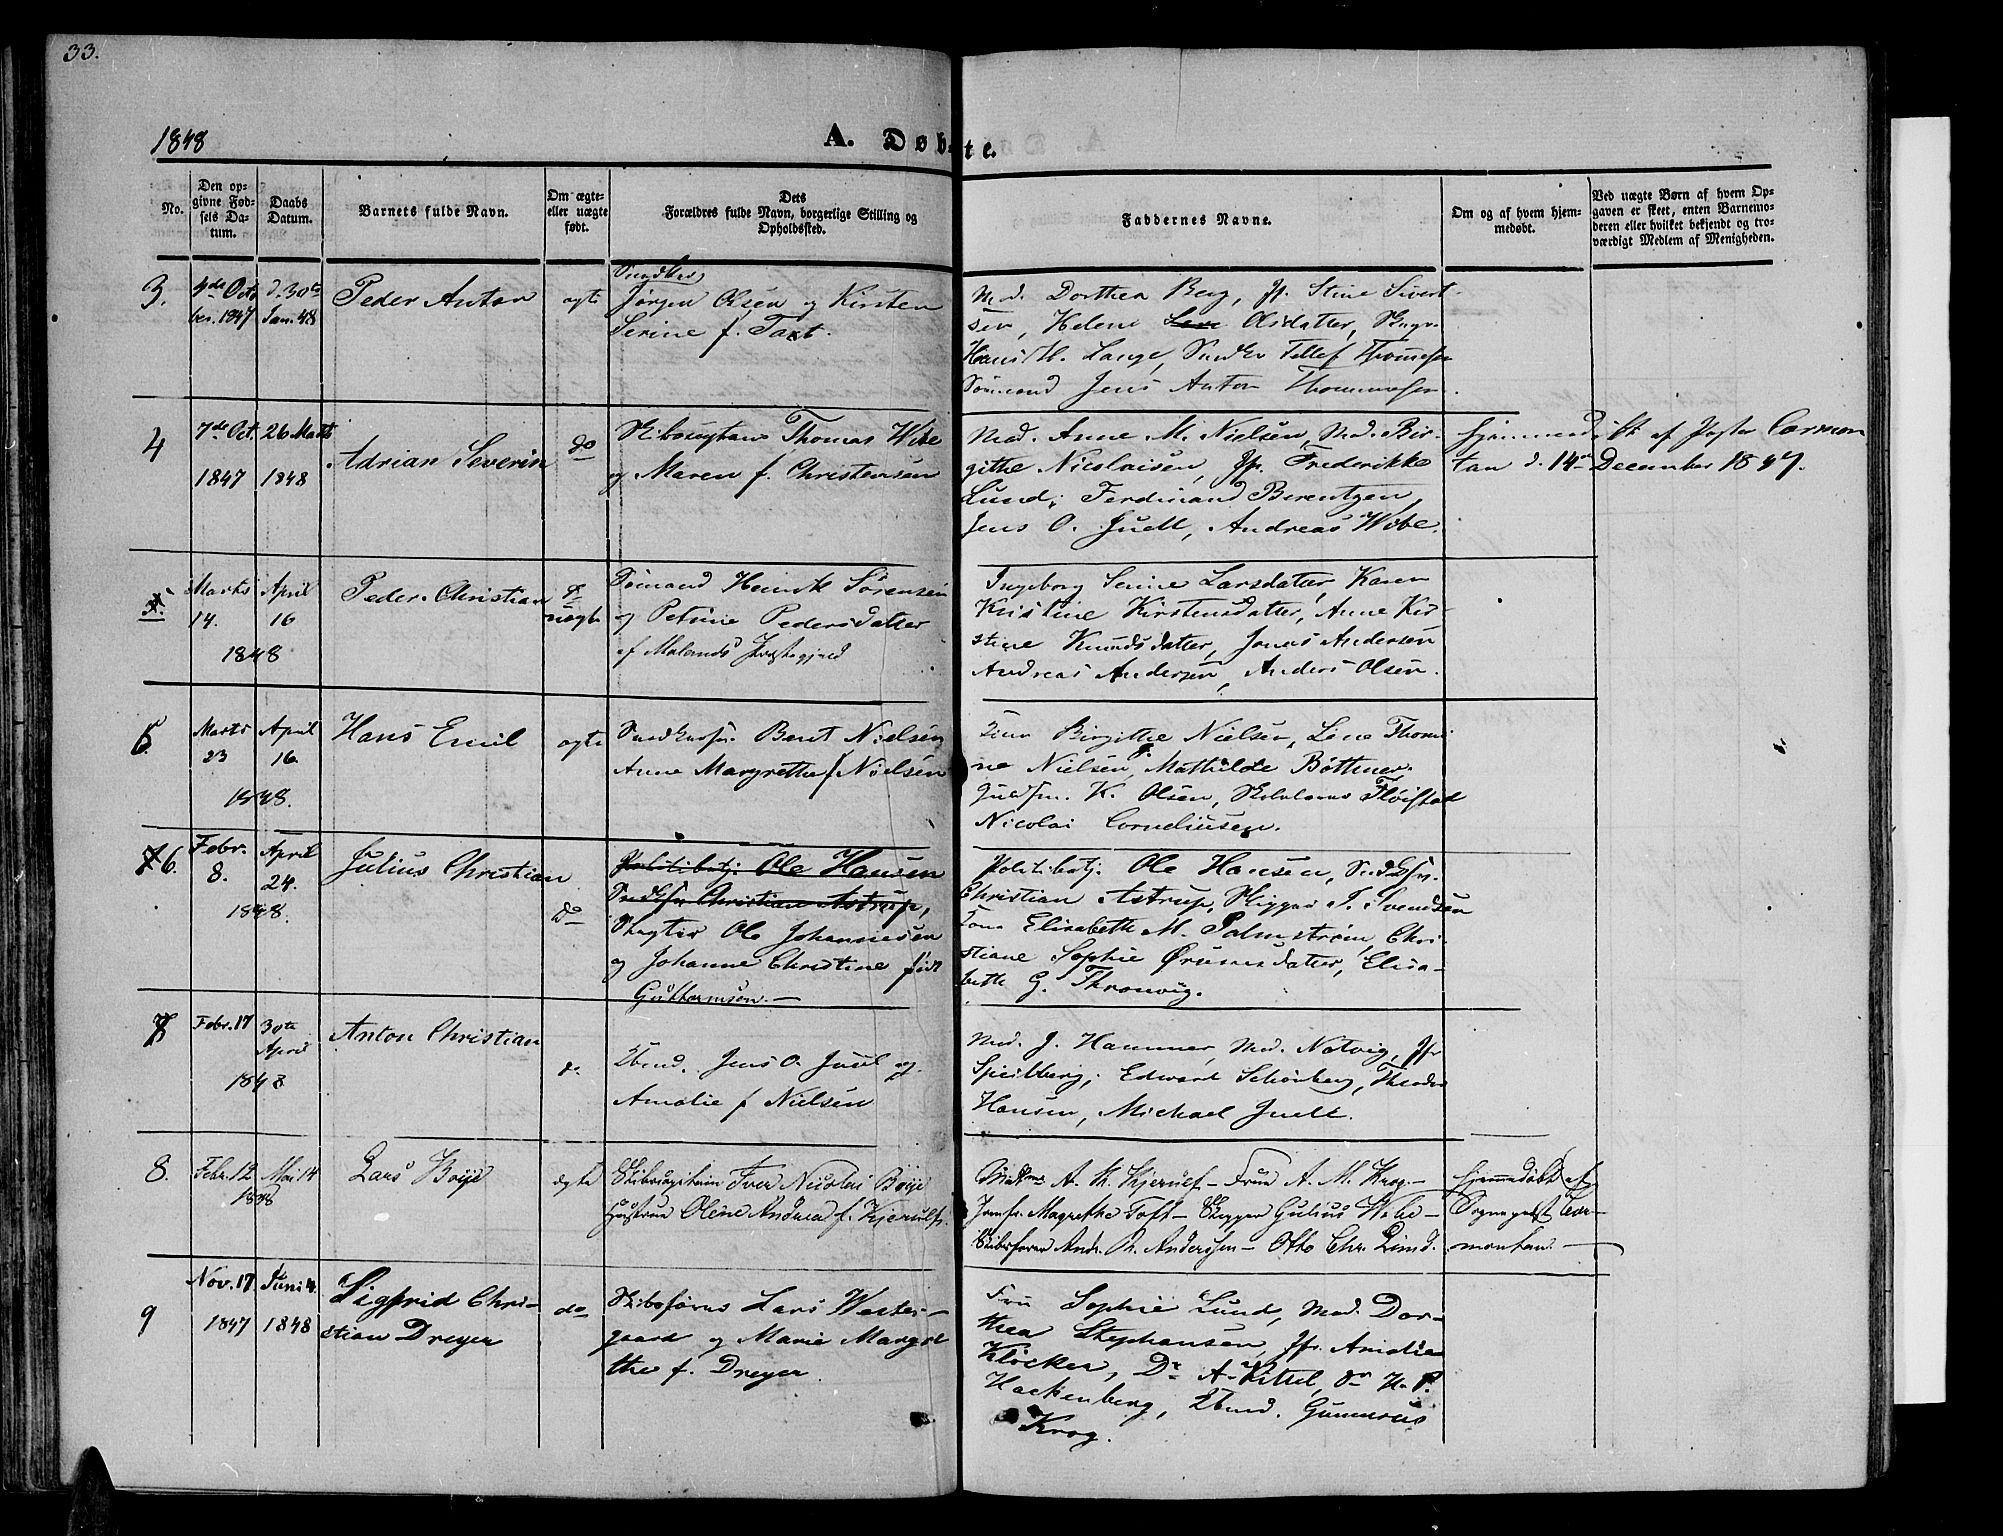 33.
1848
A. Døbte.
No.
Den op-
givne Fød-
sels Da-
tum.
Daabs
Datum.
Barnets fulde Navn.
Om ægte-
eller uægte
født.
Dets
Forældres fulde Navn, borgerlige Stilling og
Opholdssted.
Faddernes Navne.
Om og af hvem hjem-
medøbt.
Ved uægte Børn af hvem Op-
gaven er skeet, enten Barnemo-
deren eller hvilket bekjendt og tro-
værdigt Medlem af Menigheden.
3.
4de Octo
ber. 1847
d. 30te
Jan. 48
Peder Anton
ægte
Jørgen Olsen og Kirsten
Serine f. Taxt.
Mad. Dorthea Berg, Jf. Stine Sivert-
sen, Helene Olsdatter,
Hans H. Lange, Tellef Thomesen
Sømand Jens Anton Thommesen
4
7de Oct.
1847
26 Marts
1848
Adrian Severin
do
Thomas Wibe
og Maren f. Christensen
Mad. Anne M. Nielsen, Mad. Bir-
githe Nicolaisen, Jfr. Frederikke
Lund, Ferdinand Berentzen,
Jens O. Juell, Andreas Wibe.
Hjemmedøbt af Pastor Carmon
tan d. 14de December 1847.
5.
Marts
14.
April
16
1848
Peder Christian
uægte
Sømand Henrik Sørensen
og Petrine Pedersdatter
af Molands Præstegjeld
Ingeborg Serine Larsdatter, Karen
Kristine Kirstensdatter, Anne Kir-
stine Knudsdatter, Jonas Andersen
Andreas Andersen, Anders Olsen.
6.
Marts
23
April
16.
1848.
Hans Emil
ægte
Berent Nielsen
Anne Margrethe f Nielsen
Birgithe Nielsen, Lene Thomi
ne Nielsen, Mathilde Bøttner.
Guldsm. K. Olsen, Fløistad
Nicolai Corneliusen.
6.
Febr.
8.
April
24.
1848.
Julius Christian
do
Politibetj. Ole Hansen
Christian Astrup,
Slagter Ole Johannesen
og Johanne Christine født
Guttormsen.—
Politibetj. Ole Hansen,
Christian Astrup, Skipper J. Svendsen
Kone Elisabeth M. Palmstrøm, Chri-
stiane Sophie Ørunsdatter, Elisa-
beth G. Thronvig.
7
Febr. 17
30te
April
1848
Anton Christian
do
Jens O. Juul og
Amalie f Nielsen
Mad. J. Hammer, Mad. Natvig, Jfr
Speilberg, Edward Schønberg, Theodor
Hansen, Michael Juell.
8.
Febr. 12
Mai 14
1848
Lars Boije
ægte
Iver Nicolai Boije
Hustrue Olene Andrea f. Kjerulf.
A. K. Kjerulf — Frue A. M. Krog.—
Jomfr. Magrethe Toft — Skipper Gulius Wibe —
Skibsfører Andr. R. Anderssen — Otto Chr. Lund.
Hjemmedøbt af
Sognepræst Car-
montan. —
9
Nov. 17
1847
Juni 4
1848
Sigfrid Chri-
stian Dreyer
do
Skibsfører Lars Wester-
gaard og Marie Margre
the f. Dreyer.
Fru Sophie Lund, Mad. Dor-
thea Stephansen, Jfr. Amalie
Kløcker, Dr A. Kittel, Dr H. P.
Hackenberg, Gunerus
Krog.